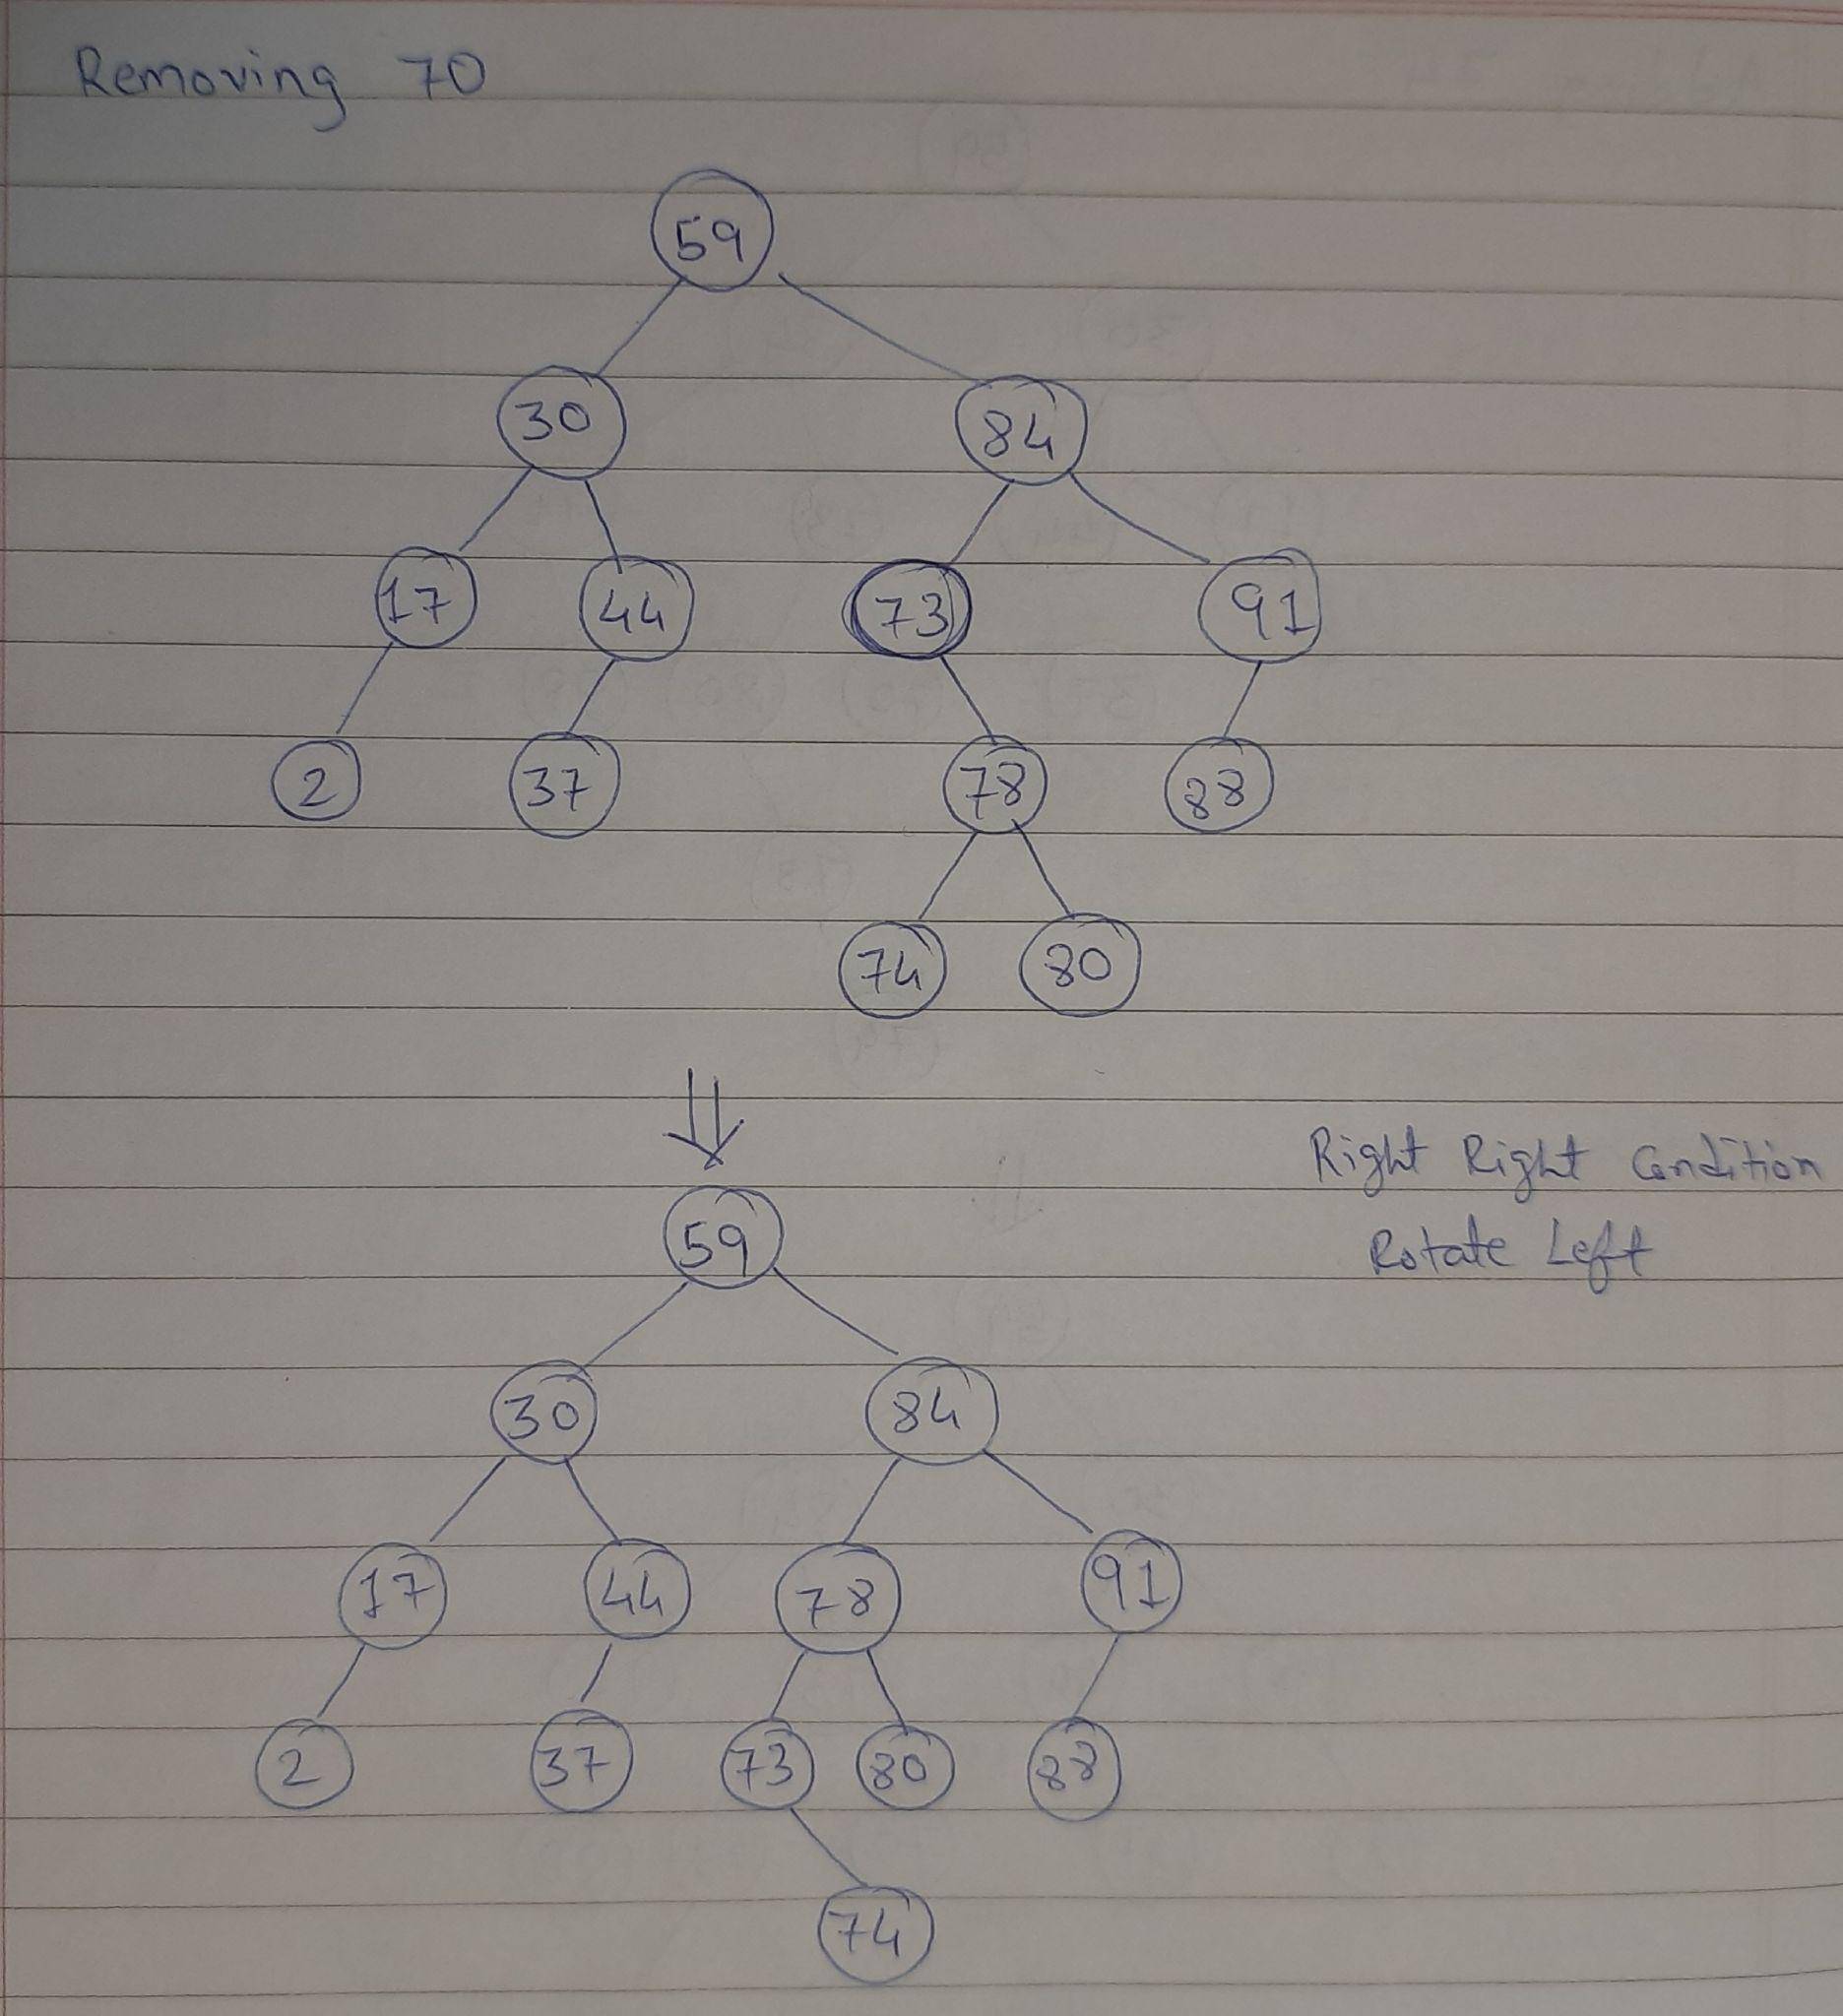 Removing 70
59
30 84
17 44 73 91
2 37 78 88
74 80
Right Right Condition
59 Rotate Left
30 84
17 44 78 91
2 37 73 80 88
74